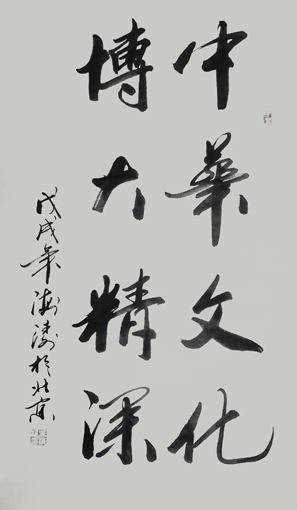 中華文化
博大精深
戊戌年海濤於北京